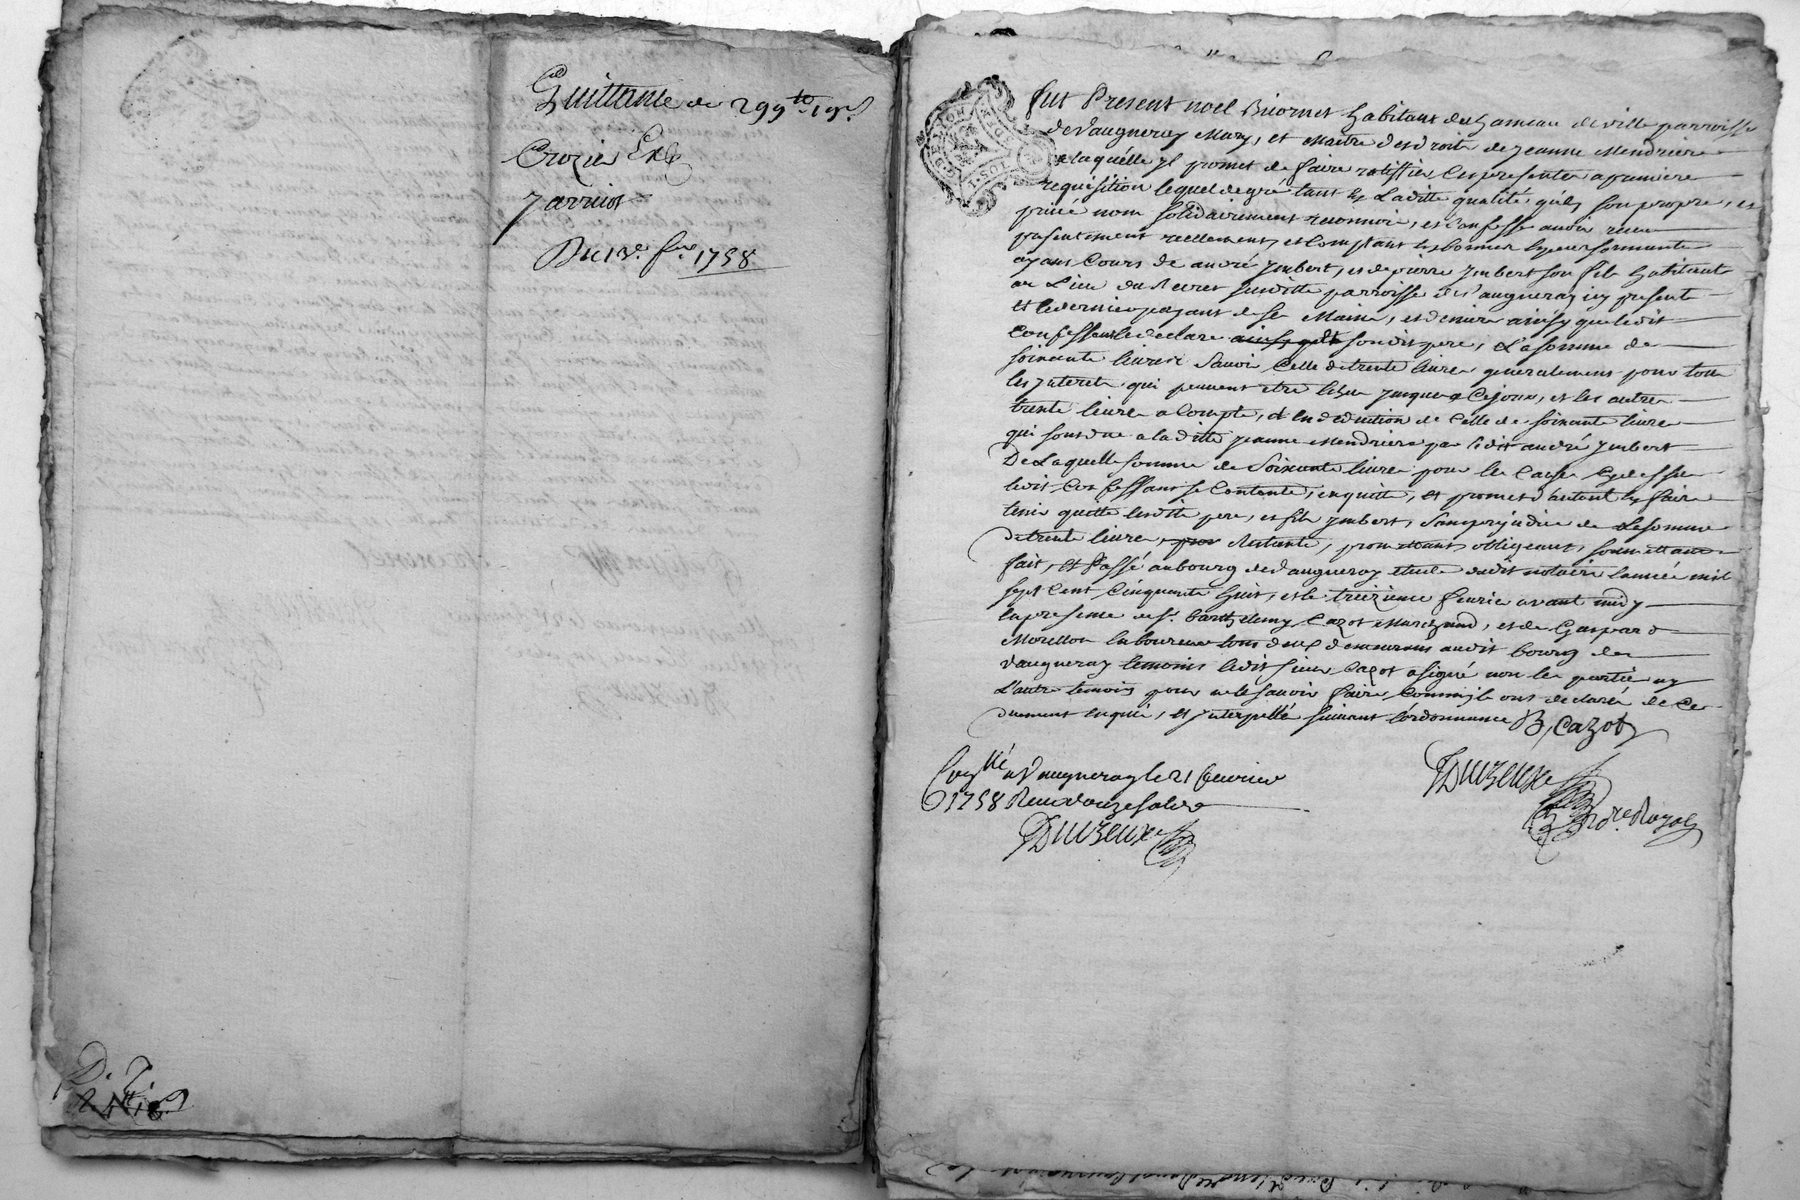 Quittance de 299 ₶ 19 s
Crozier Exp
Jarricot
Du 13e fer 1758
Fut Present noel Biornet habitant du hameau de ville parroisse
de Vaugneray Mary, et maitre des droits de jeanne Mendriere
a laquelle jl promet de faire rattiffier Ces presentes a premiere
requisition lequel de gré tant En Laditte qualité, qu'En son propre, et
privé nom solidairement reconnoit, et Confesse avoir receu
presentement reellement, et Comptant En bonnes Especes sonnante
ayant Cours de andré jmbert, et de pierre jmbert son fils habitant
au Lieu du Recret susditte parroisse de Vaugneray jcy present
Et le dernier payant de ses Mains, et deniers ainsy que ledit
Confessant le declare son dit pere, La somme de
soixante livres Savoir Celle de trente livres generalement pour tous
les jnterets qui peuvent etre Echus jusques a Cejour, et les autres
trente livres a Compte, et En deduction de Celle de soixante livres
qui sont due a laditte jeanne Mendriere par ledit andré jmbert
De Laquelle somme de Soixante livres pour les Causes Cydessus
ledit Confessant se Contente, en quitte, et promet d'autant En faire
tenir quitte lesdits pere, et fils jmbert, sans prejudice de La somme
de trente livres, Restante, promettant, obligeant, soumettant
fait, Et Passé au bourg de Vaugneray etude dudit notaire Lannée mil
sept Cent Cinquante huit, et le treizieme fevrier avant midy
En presence de sr. barthelemy Cazot Marchand, et de Gaspard
Morellon laboureur tous deux demeurants audit bourg de
Vaugneray temoins ledit sieur Cazot a signé non les parties ny
L'autre temoin pour ne le savoir faire Comme jls ont declaré de Ce
dument enquis, et jnterpellé suivant l'ordonnance B, Cazot
Conllé a Vaugneray le 21 fevrier
1758 Reçu douze sols
Duvzeuxe
Duvzeuxe